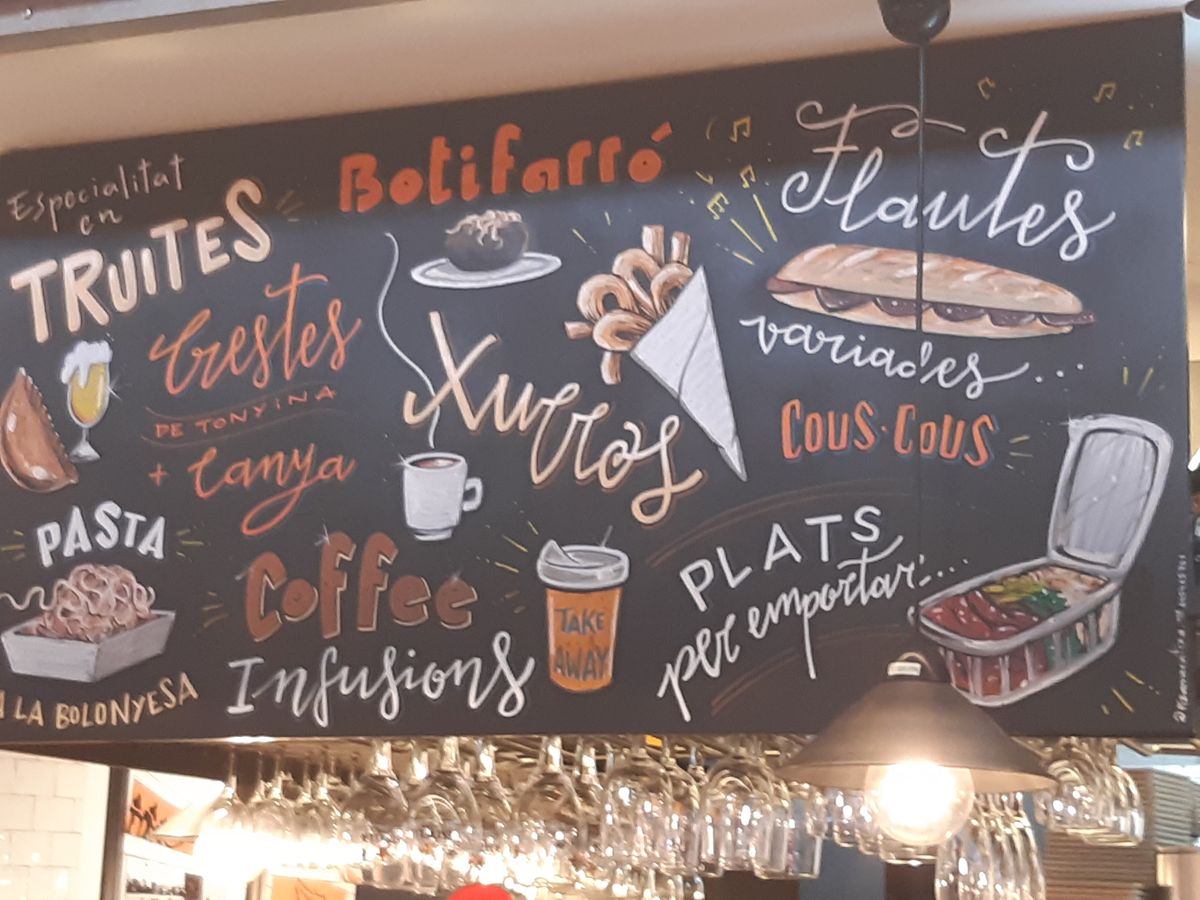 Especialitat
en
TRUITES
Botifarró
Flautes
variades...
Crestes
DE TONYINA
+ Canya
Xurros
COUS·COUS
PASTA
A LA BOLONYESA
Coffee
Infusions
TAKE
AWAY
PLATS
per emportar...